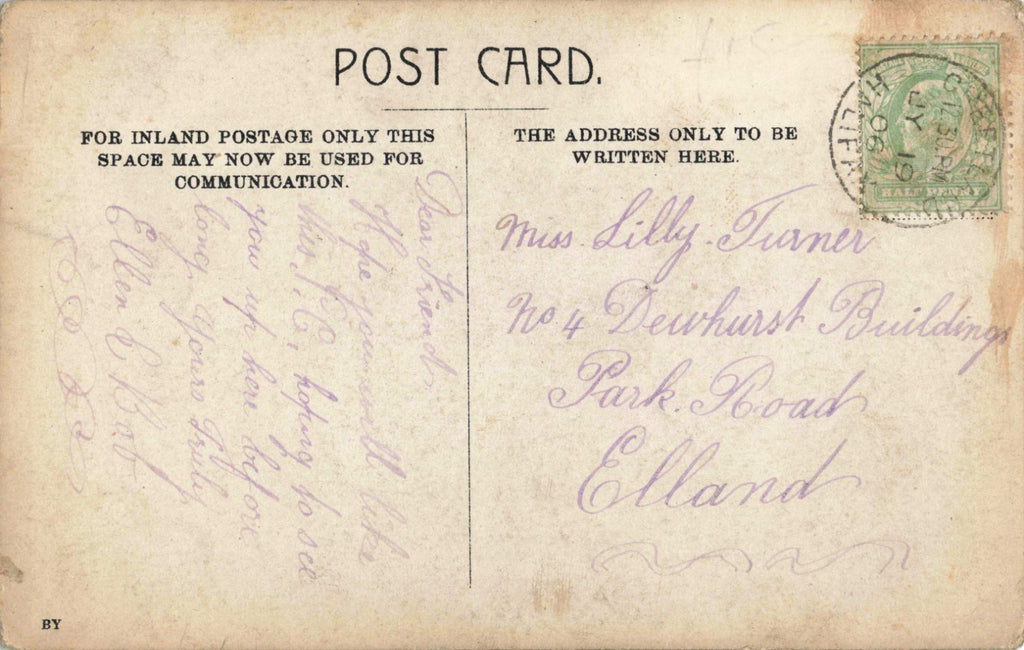 POST CARD.
FOR INLAND POSTAGE ONLY THIS
SPACE MAY NOW BE USED FOR
COMMUNICATION.
THE ADDRESS ONLY TO BE
WRITTEN HERE.
Dear Friend
Hope you will like
this P.C. hoping to see
you up here before
long. Yours Truly
Ellen E
Miss. Lilly. Turner
No 4 Dewhurst Buildings
Park. Road
Elland
HALIFAX
12.30 PM
JY 19
06
HALF PENNY
BY